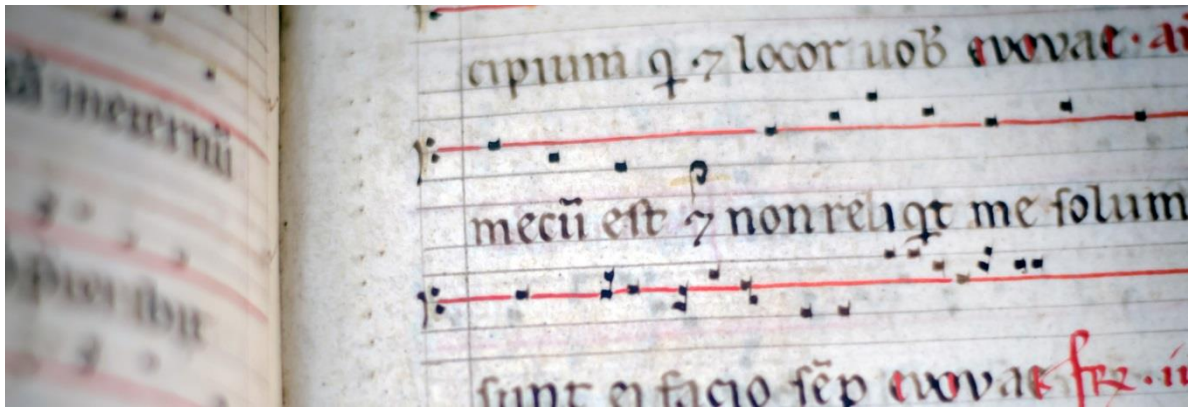 meternū
cipium q̄ · ⁊ locor uob̄ evovae · an̄
mecū est ⁊ non reliq̄t me solum
sunt ei facio sēp evovae fr̄ · ii